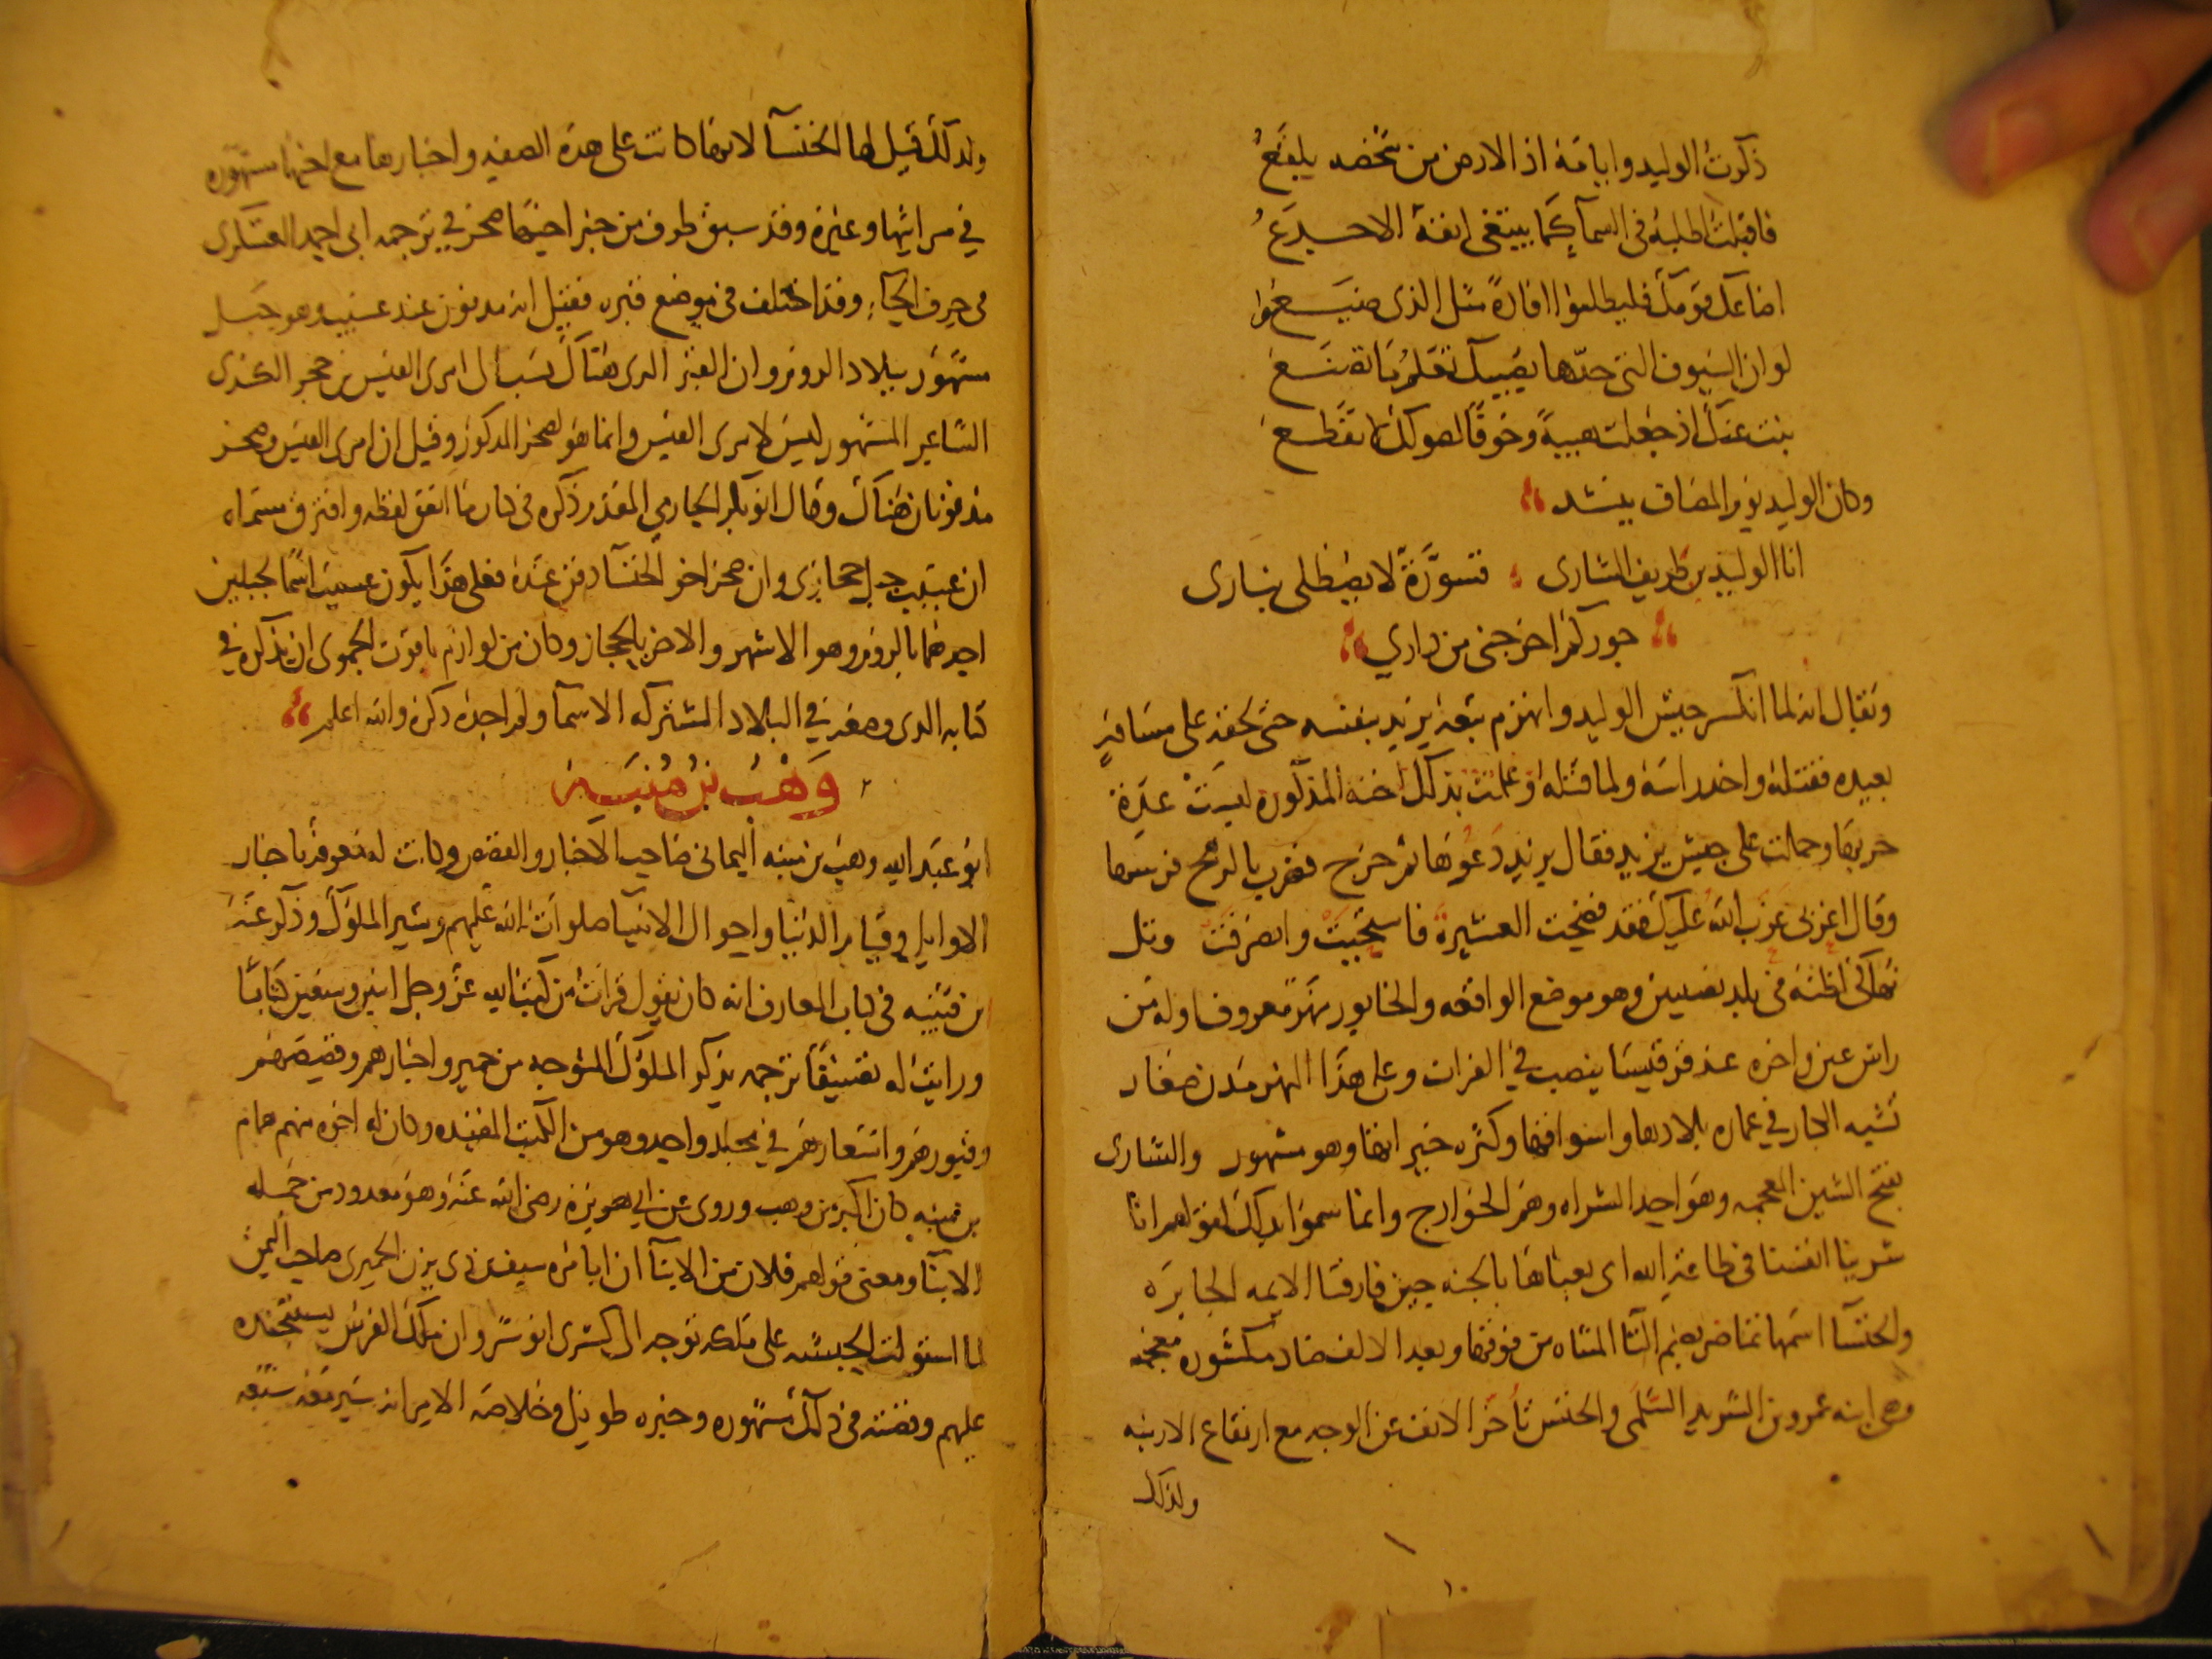 ذكرت الوليد وايامه اذ الارض من شخصه بلقع
فاقبلت اطلبه في السماء كما يبتغي انفه الاجدع
اضاعك قومك فليطلبوا افادة مثل الذي ضيعوا
لو ان السيوف التي حدها يصيبك تعلم ما تصنع
نبت عنك اذ جعلت هيبة وخوفا لصولك لا تقطع
وكان الوليد يوم المصاف ينشد
انا الوليد بن طريف الشارى قسورة لا يصطلى بنارى
جوركم اخرجني من داري
ويقال انه لما انكسر جيش الوليد وانهزم تبعه يزيد بنفسه حتى لحقه على مسافة
بعيده فقتله واخذ راسه ولما قتله وعلمت بذلك اخته المذكوره لبست عدة
حربها وحملت على جيش يزيد فقال يزيد دعوها ثم خرج فضرب بالرمح فرسها
وقال اغربى غرب الله عليك فقد فضحت العشيرة فاستحيت وانصرفت وتل
نهاكى اظنه في بلد نصيبين وهو موضع الواقعه والخابور نهر معروف اوله من
راس عين واخره عند قرقيسيا ينصب في الفرات وعلى هذا النهر مدن صغار
تشبه الجار في عمارة بلادها واسواقها وكثره خيراتها وهو مشهور والشارى
بفتح الشين المعجمه وهو احد الشراه وهم الخوارج وانما سموا بذلك لقولهم انا
شرينا انفسنا في طاعة الله اى بعناها بالجنه حين فارقنا الايمه الجايره
والخنسآ اسمها تماضر بضم التا المثناه من فوقها وبعد الالف ضاد مكسوره معجمه
وهي ابنه عمرو بن الشريد السلمى والخنس تاخر الانف عن الوجه مع ارتفاع الارنبه
ولذلك
ولذلك قيل لها الخنسآ لانها كانت على هذه الصفه واخبارها مع اخيها مشهوره
في مراثيها وغيره وقد سبق طرف من خبر اخيها صخر في ترجمه ابي احمد العسكرى
في حرف الحاء وقد اختلف في موضع قبره فقيل انه مدفون عند عسيب وهو جبل
مشهور ببلاد الروم وان القبر الذى هناك ينسب الى امرى القيس بن حجر الكندى
الشاعر المشهور ليس لامرى القيس وانما هو لصخر المذكور وقيل ان امرى القيس وصخر
مدفونان هناك وقال ابو بكر الحازمي المقدم ذكره في كتاب ما اتفق لفظه وافترق مسماه
ان عسيب جبل حجازى وان صخر اخو الخنسآ دفن عنده فعلى هذا يكون عسيب اسما لجبلين
احدهما بالروم وهو الاشهر والاخر بالحجاز وكان من لوازم ياقوت الحموى ان يذكره في
كتابه الذى وضعه في البلاد المشتركه الاسما ولم اجده ذكره والله اعلم
وهب بن منبه
ابو عبد الله وهب بن منبه اليماني صاحب الاخبار والقصص وكانت له معرفة باخبار
الاوايل وقيام الدنيا واحوال الانبيا صلوات الله عليهم وسير الملوك وذكر عنه
ابن قتيبه في كتاب المعارف انه كان يقول قرات من كتب الله عز وجل اثنين وسبعين كتابا
ورايت له تصنيفا ترجمه بذكر الملوك المتوجه من حمير واخبارهم وقصصهم
وقبورهم واشعارهم في مجلد واحد وهو من الكتب المفيده وكان له اخوه منهم همام
بن منبه كان اكبر من وهب وروى عن ابي هريرة رضى الله عنه وهو معدود من جمله
الابنا ومعنى قولهم فلان من الابنا ان ابا مره سيف بن ذى يزن الحميرى صاحب اليمن
لما استولت الحبشه على ملكه توجه الى كسرى انوشروان ملك الفرس يستنجده
عليهم وقصته في ذلك مشهوره وخبره طويل وخلاصه الامر انه سير معه سبعه